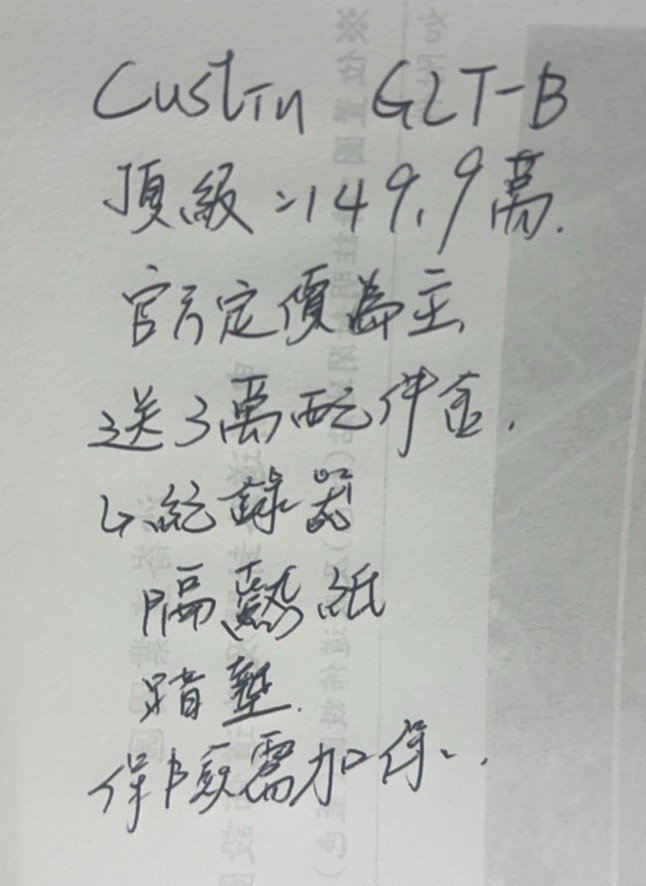 Custin GLT-B
頂級:149.9萬.
官方定價為主
送3萬配件金.
↳紀錄器
隔熱紙
踏墊.
保險需加保..